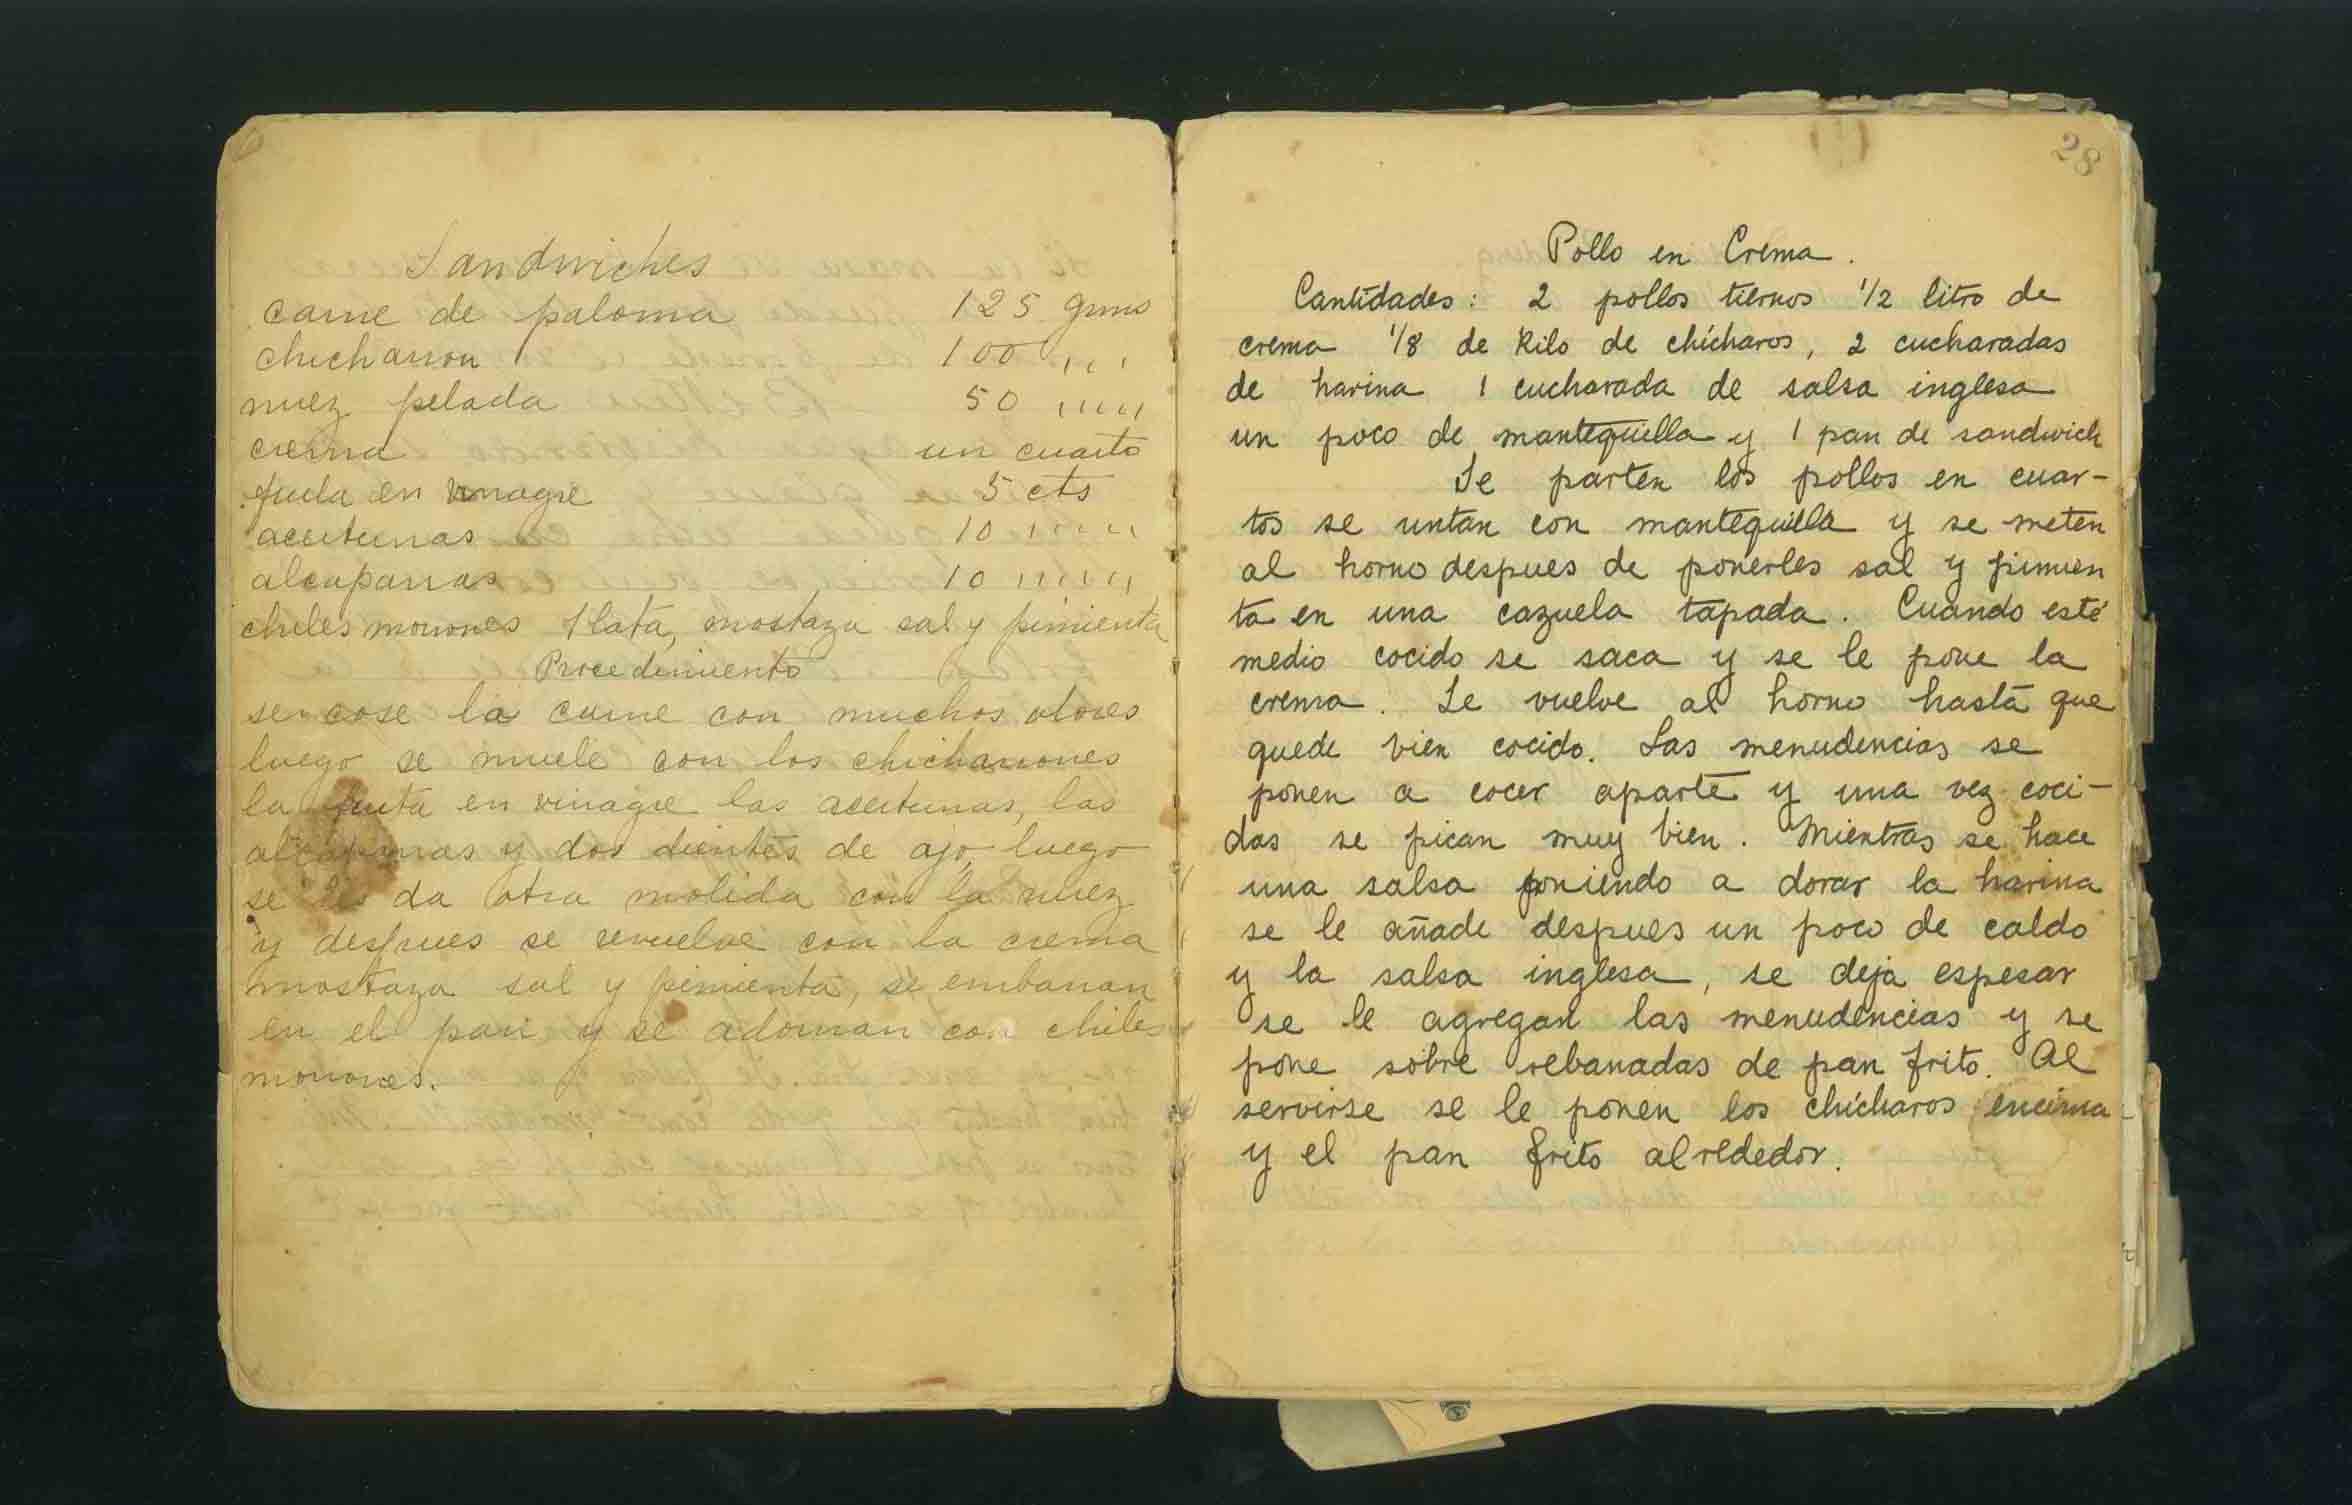 Sandwiches
carne de paloma 125 grms
chicharron 100 ,,,
nuez pelada 50 ,,,,,
crema un cuarto
fruta en vinagre 5 cts
aceitunas 10 ,,,,,
alcaparras 10 ,,,,,,
chiles morrones 1 lata, mostaza sal y pimienta
Procedimiento
se cose la carne con muchos olores
luego se muele con los chicharrones
la fruta en vinagre las aceitunas, las
alcaparras y dos dientes de ajo, luego
se les da otra molida con la nuez
y despues se revuelve con la crema
mostaza sal y pimienta, se embarran
en el pan y se adornan con chiles
morrones.
28
Pollo en Crema.
Cantidades: 2 pollos tiernos 1/2 litro de
crema 1/8 de Kilo de chícharos, 2 cucharadas
de harina 1 cucharada de salsa inglesa
un poco de mantequilla y 1 pan de sandwich
Se parten los pollos en cuar-
tos se untan con mantequilla y se meten
al horno despues de ponerles sal y pimien
ta en una cazuela tapada. Cuando esté
medio cocido se saca y se le pone la
crema. Se vuelve al horno hasta que
quede bien cocido. Las menudencias se
ponen a cocer aparte y una vez coci-
das se pican muy bien. Mientras se hace
una salsa poniendo a dorar la harina
se le añade despues un poco de caldo
y la salsa inglesa, se deja espesar
se le agregan las menudencias y se
pone sobre rebanadas de pan frito. Al
servirse se le ponen los chícharos encima
y el pan frito alrededor.